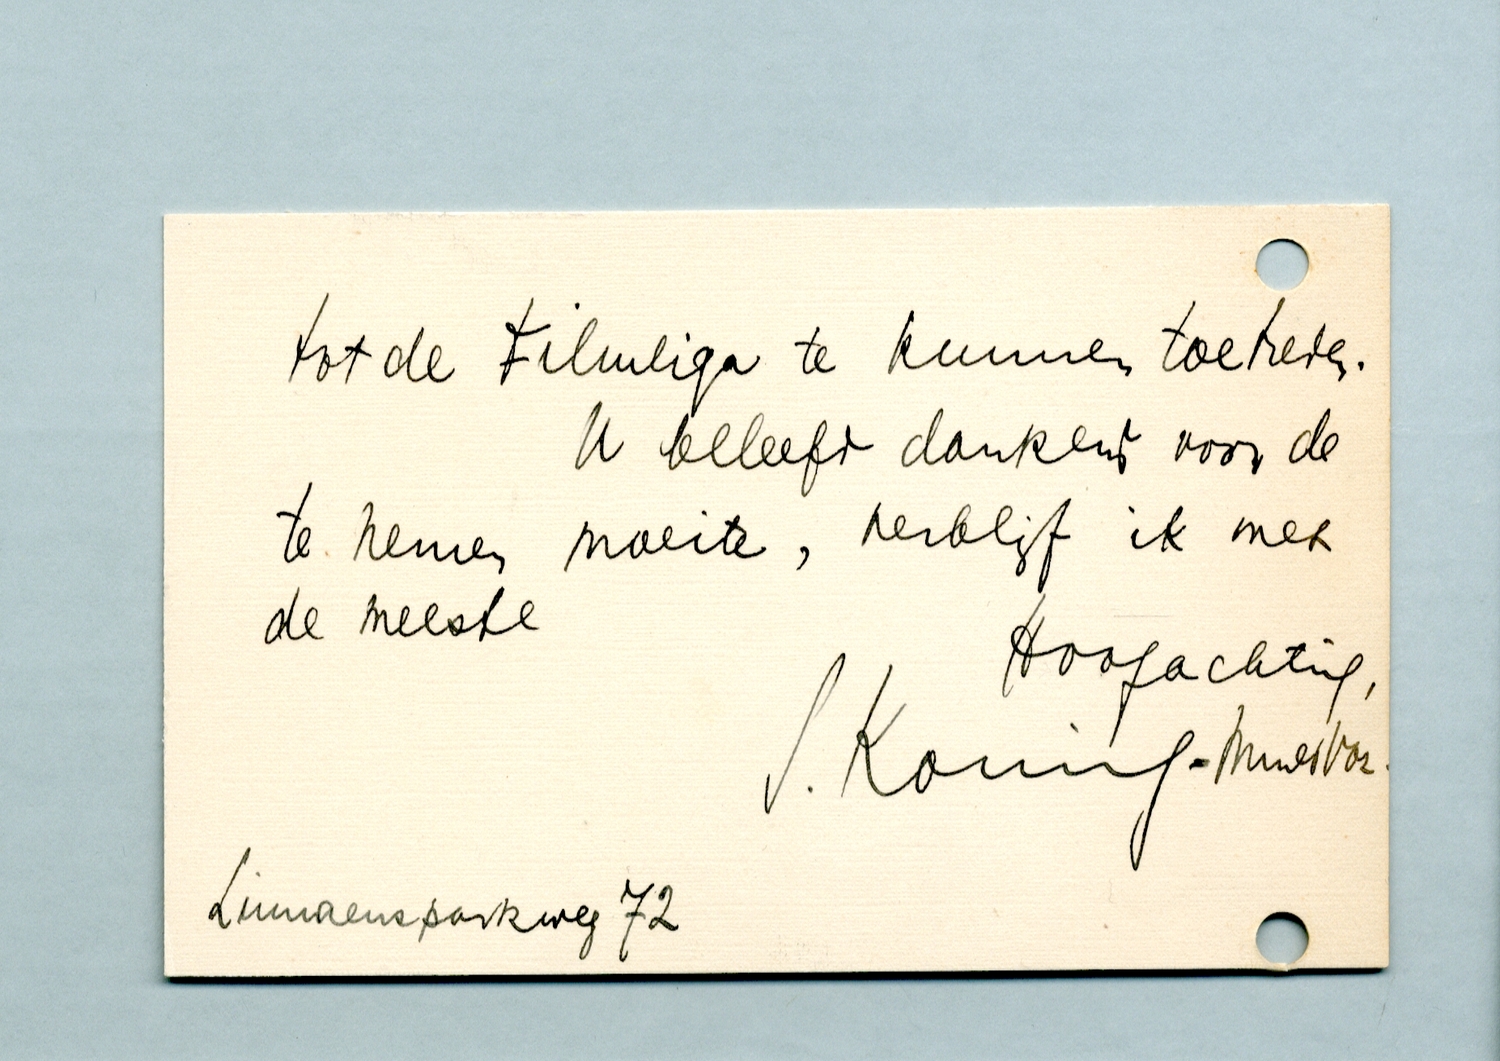 tot de Filmliga te kunnen toetreden.
U beleefd dankend voor de
te nemen moeite, verblijf ik met
de meeste
Hoogachting,
S. Koning-
Linnaeusparkweg 72